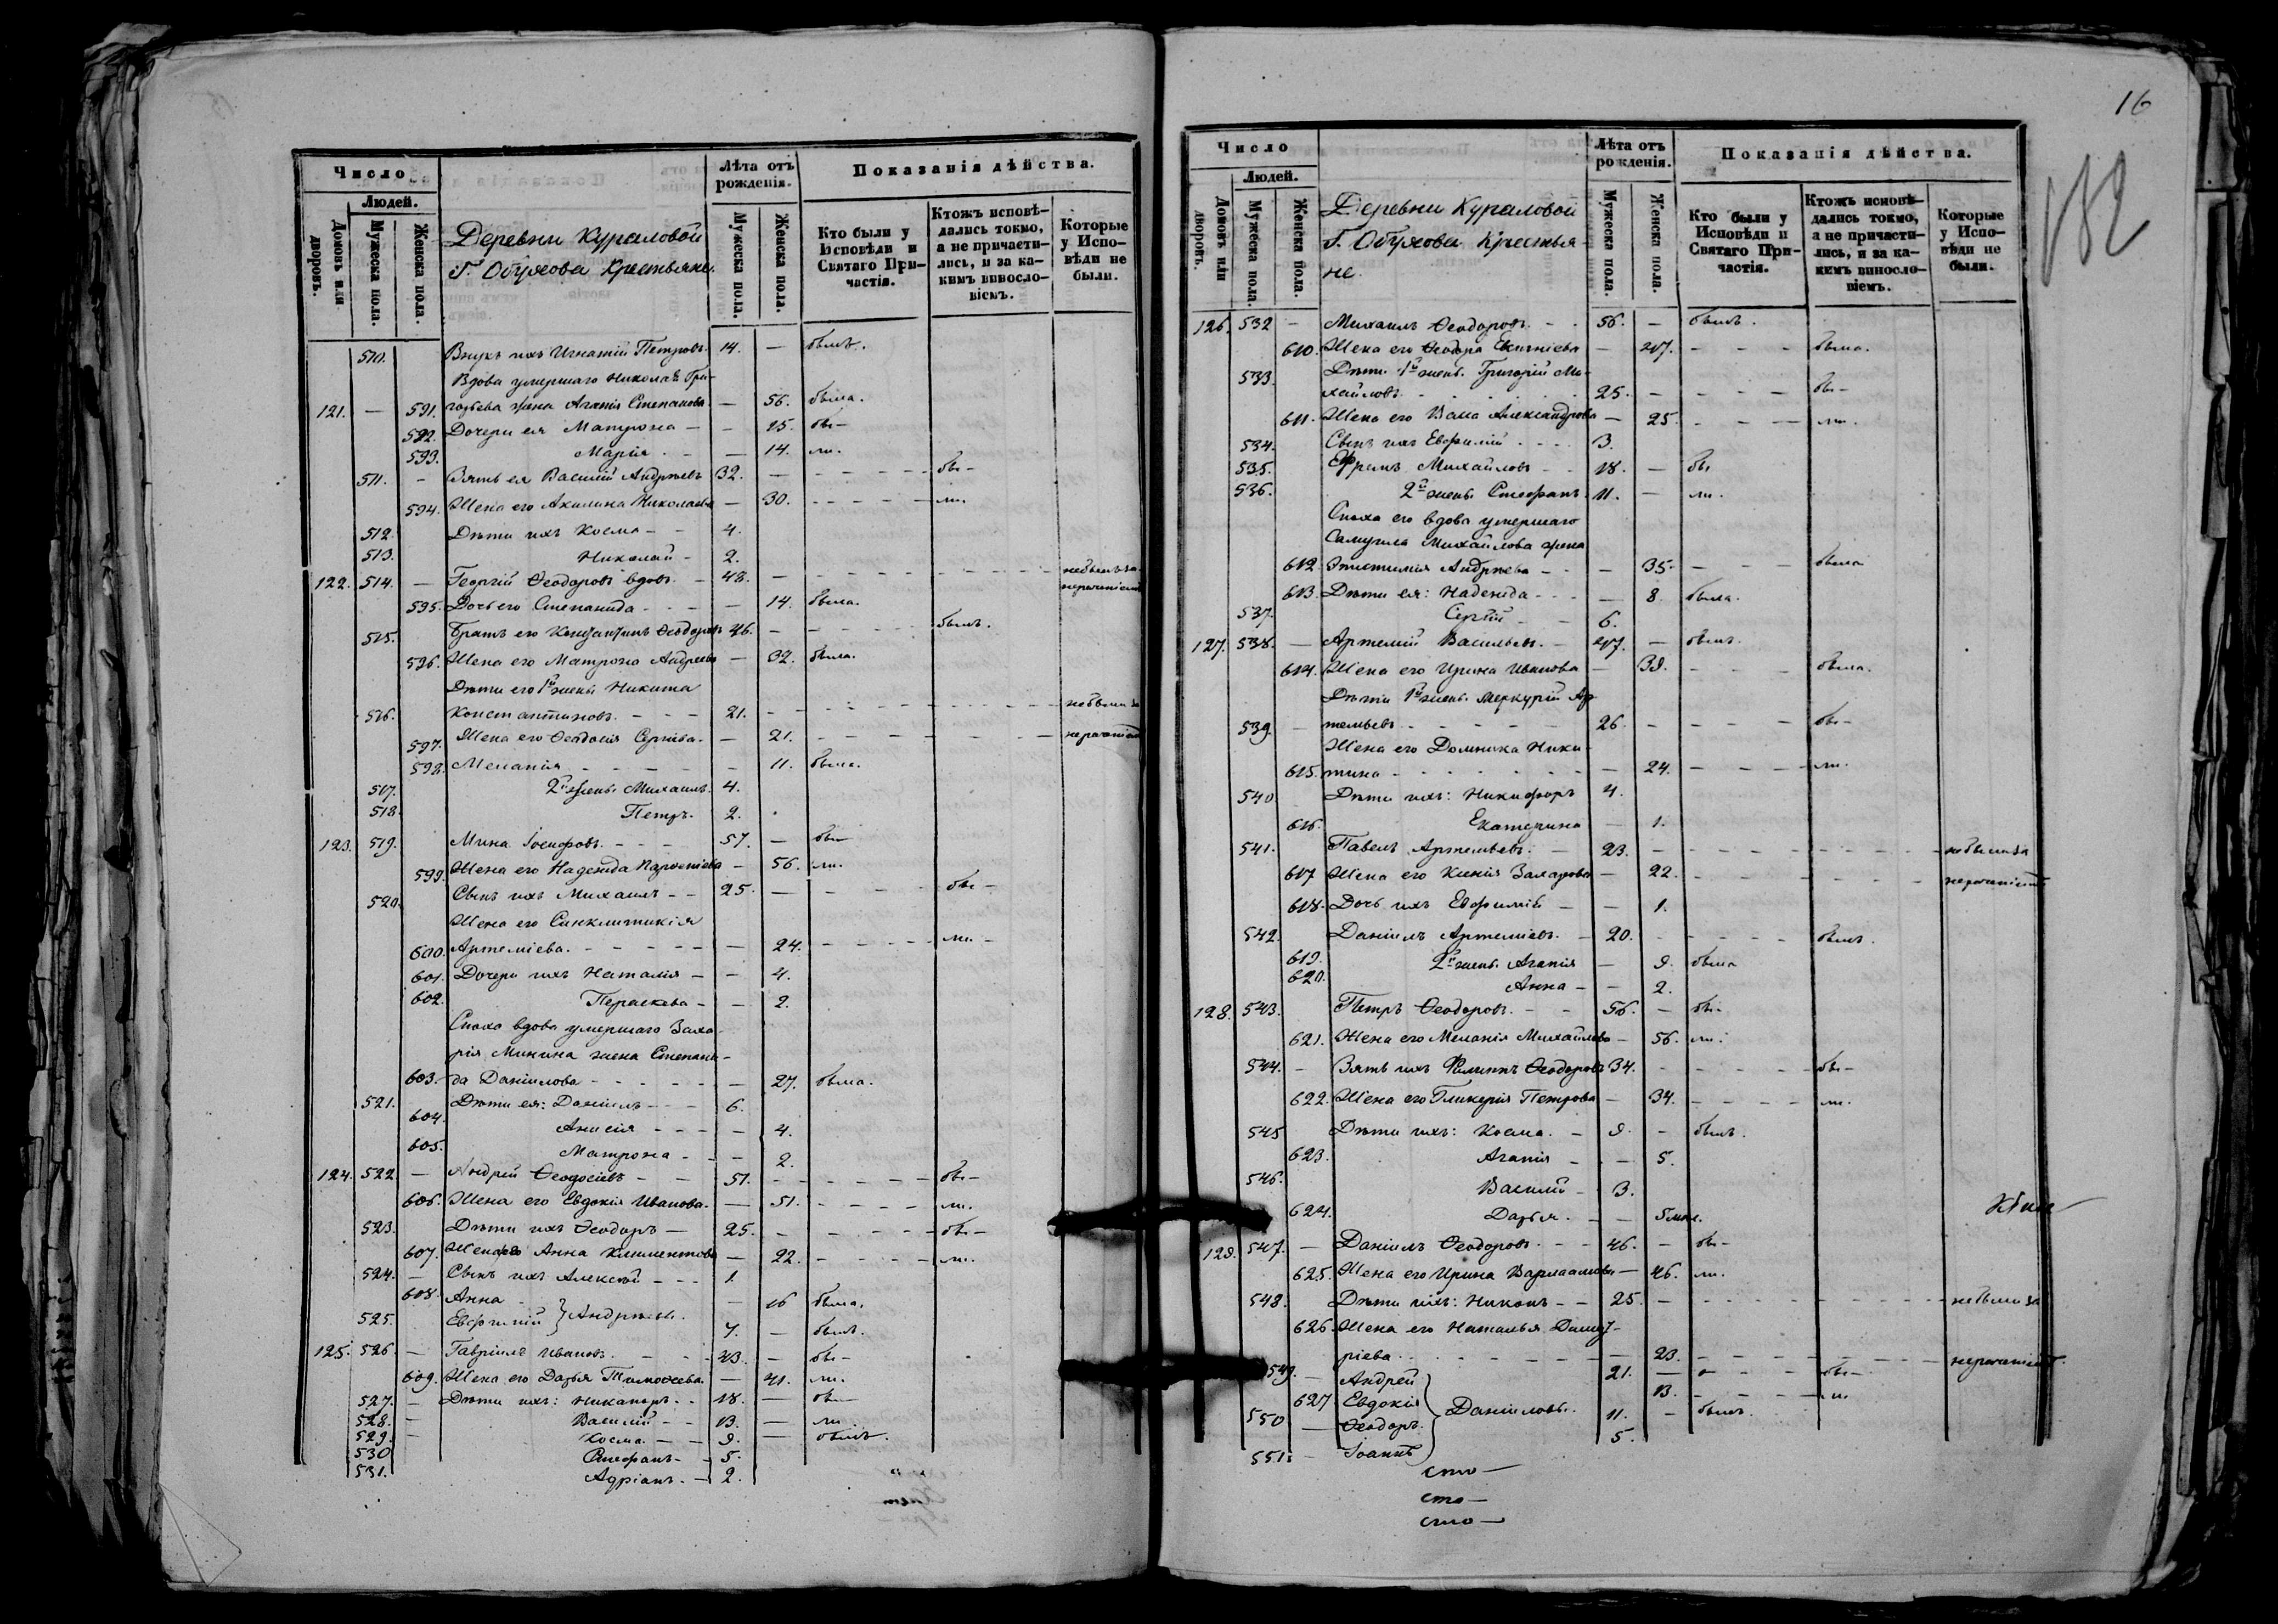 Число
Людей.
Домовъ или дворовъ.
Мужеска пола.
Женска пола.
Деревни Кураловой
Г. Обухова Крестьяне.
Лѣта отъ рожденія.
Мужеска пола.
Женска пола.
Показанія дѣйства.
Кто были у Исповѣди и Святаго Причастія.
Ктожъ исповѣдались токмо, а не причастились, и за какимъ винословіемъ.
Которые у Исповѣди не были.
510. Внукъ ихъ Игнатій Петровъ. 14. — былъ.
Вдова умершаго Николая Гри-
121. — 591. горьева жена Агапія Степанова — 56. была.
592. Дочери ея Матрона — — 15. бы—
593. Марія — — 14. ли.
511. — Зять ея Василій Андреевъ 32. — бы—
594. Жена его Акилина Николаева — 30. ли.
512. Дѣти ихъ Косма — 4.
513. Николай — 2.
122. 514. — Георгій Ѳеодоровъ вдовъ. — 48. — небылъ за
595. Дочь его Степанида — 14. была. нерачені
515. Братъ его Константинъ Ѳеодоровъ 46. — былъ.
596. Жена его Матрона Андреева — 32. была.
Дѣти его 1й жены Никита
516. Константиновъ. 21. — небыли за
597. Жена его Ѳеодосія Сергіева. — 21. нерачені
598. Меланія — 11. была.
517. 2й жены Михаилъ. 4.
518. Петръ. 2.
123. 519. Мина Іосифовъ. 57. — бы—
599. Жена его Надежда — 56. ли.
520. Сынъ ихъ Михаилъ — 25. — бы—
Жена его Синклитикія
600. Артеміева. — 24. ли.
601. Дочери ихъ Наталія — — 4.
602. Параскева — — 2.
Сноха вдова умершаго Заха-
рія Минина жена Степани-
603. да Даніилова — 27. была.
521. Дѣти ея: Даніилъ — 6.
604. Анисія — 4.
605. Матрона — 2.
124. 522. — Андрей Ѳеодосіевъ — 51. бы—
606. Жена его Евдокія Иванова. — 51. ли.
523. Дѣти ихъ Ѳеодоръ — 25. бы—
607. Жена его Анна Климентова — 22. ли.
524. — Сынъ ихъ Алексій — 1
608. Анна — 16 была.
525. Евфимій } Андреевы. 7. — былъ.
125. 526. — Гавріилъ Ивановъ. 43. — бы—
609. Жена его Дарья Тимоѳеева. — 41. ли.
527. — Дѣти ихъ: Никаноръ. 18. — бы—
528. — Василій — 13. — ли
529. — Косма. — 9. — былъ.
530 Стефанъ — 5.
531. Адріанъ. — 2.
16
152
Число
Людей.
Домовъ или дворовъ.
Мужеска пола.
Женска пола.
Деревни Кураловой
Г. Обухова Крестья
не.
Лѣта отъ рожденія.
Мужеска пола.
Женска пола.
Показанія дѣйства.
Кто были у Исповѣди и Святаго Причастія.
Ктожъ исповѣдались токмо, а не причастились, и за какимъ винословіемъ.
Которые у Исповѣди не были.
126. 532 — Михаилъ Ѳеодоровъ. 56. — былъ.
610. Жена его Ѳеодора — 47. была.
533. Дѣти 1й жены. Григорій Ми-
хайловъ. 25. бы—
611. Жена его Васса Александрова — 25. ли.
534. Сынъ ихъ Евфимій 3.
535. Ефремъ Михайловъ 18. — бы
536. 2й жены Стефанъ. 11. — ли.
Сноха его вдова умершаго
Самуила Михайлова жена
612. Епистимія Андреева — 35. была
613. Дѣти ея: Надежда — 8. была.
537. Сергій 6.
127. 538. — Артемій Васильевъ. 47. — былъ.
614. Жена его Ирина Иванова — 39. была.
Дѣти 1й жены. Меркурій Ар
539. — темьевъ 26. бы—
Жена его Домника Ники-
615. тина — 24. ли.
540. Дѣти ихъ: Никифоръ 4.
616. Екатерина — 1.
541. Павелъ Артемьевъ. 23. небыли за
617 Жена его Ксенія Захарова — 22. нерачені
618. Дочь ихъ Евфимій — 1.
542. Даніилъ Артеміевъ. 20. былъ.
619. 2й жены. Агапія — 9. была
620. Анна — 2.
128. 543. Петръ Ѳеодоровъ. 56. — бы—
621. Жена его Меланія Михайлова — 56. ли.
544. — Зять ихъ Филиппъ Ѳеодоровъ 34. бы—
622. Жена его Гликерія Петрова — 34. ли.
545 Дѣти ихъ: Косма. — 9. — былъ.
623. Агапія — — 5.
546. Василій — 3.
624. Дарья. — — 5 мѣс.
129. 547. — Даніилъ Ѳеодоровъ. 46. — бы—
625. Жена его Ирина Варлаамова — 46. ли.
548. Дѣти ихъ: Никонъ — 25. — небыли за
626. Жена его Наталья Димит-
ріева. — 23. нерачені
549. — Андрей 21. — бы—
627 Евдокія 13. ли
550 — Ѳеодоръ } Даніиловы. 11. — былъ.
551. — Іоаннъ 5.
сто—
сто—
сто—